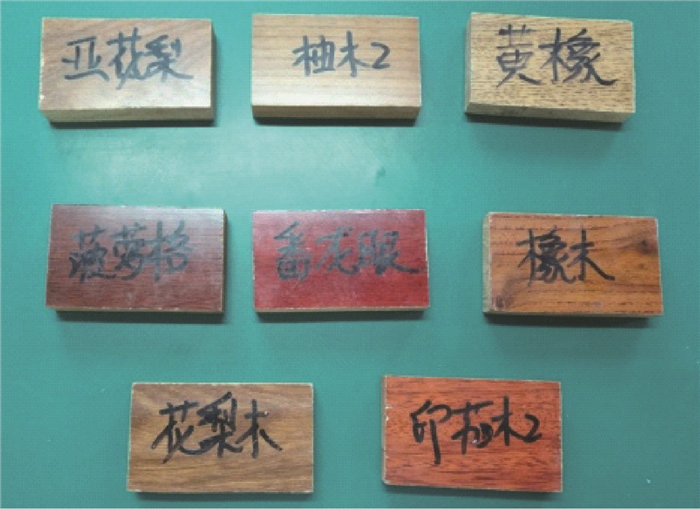 亚花梨
柚木2
黄橡
菠萝格
番龙眼
橡木
花梨木
印柚木2